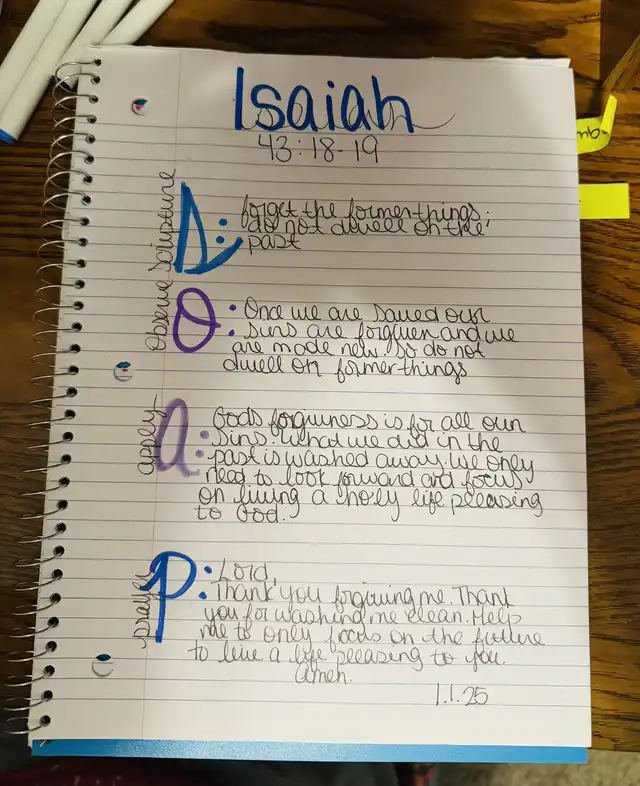 Isaiah
43:18-19
Scripture
S: forget the former things;
do not dwell on the
past
Observe
O: Once we are saved our
sins are forgiven and we
are made new. so do not
dwell on former things
apply
a: Gods forgiveness is for all our
sins. what we did in the
past is washed away. we only
need to look forward and focus
on living a holy life pleasing
to God.
prayer
P: Lord,
Thank you forgiving me. Thank
you for washing me clean. Help
me to only focus on the future
to live a life pleasing to you.
amen.
1.1.25